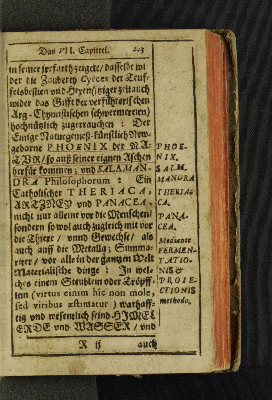 Das VII. Capittel. 203
in seiner Irrfarth zeigete / dasselbe wi-
der die Zauberey Cyrces der Teuf-
felsbestien und Hexen / itziger zeit auch
wider das Gifft der verführerischen
Arg-Chymistischen schwermereien)
hochnützlich zugebrauchen : Der
Einige Naturgemeß-künstlich New-
gebarne PHOENIX der NA-
TUR / so auß seiner eignen Aschen
herfür kommen; und SALAMAN-
DRA Philosophorum : Ein
Catholischer THERIACA,
ARTZNEY und PANACEA,
nicht nur alleine vor die Menschen /
sondern so wol auch zugleich mit vor
die Thiere / unnd Gewechse / als
auch auff die Metalla; Summa-
riter / vor alle in der gantzen Welt
Materialische dinge : In wel-
ches einem Steublem oder Tröpff-
lein (virtus einim hic non mole,
sed viribus æstimatur) warhaff-
tig und wesentlich seind HIMEL
ERDE und WASSER / und
R ij auch
PHOE-
NIX,
SALM.
MANDRA
THERIA-
CA,
PANA-
CEA.
Mediante
FERMEN-
TATIO-
NIS &
PROIE-
CTIONIS
methodo.